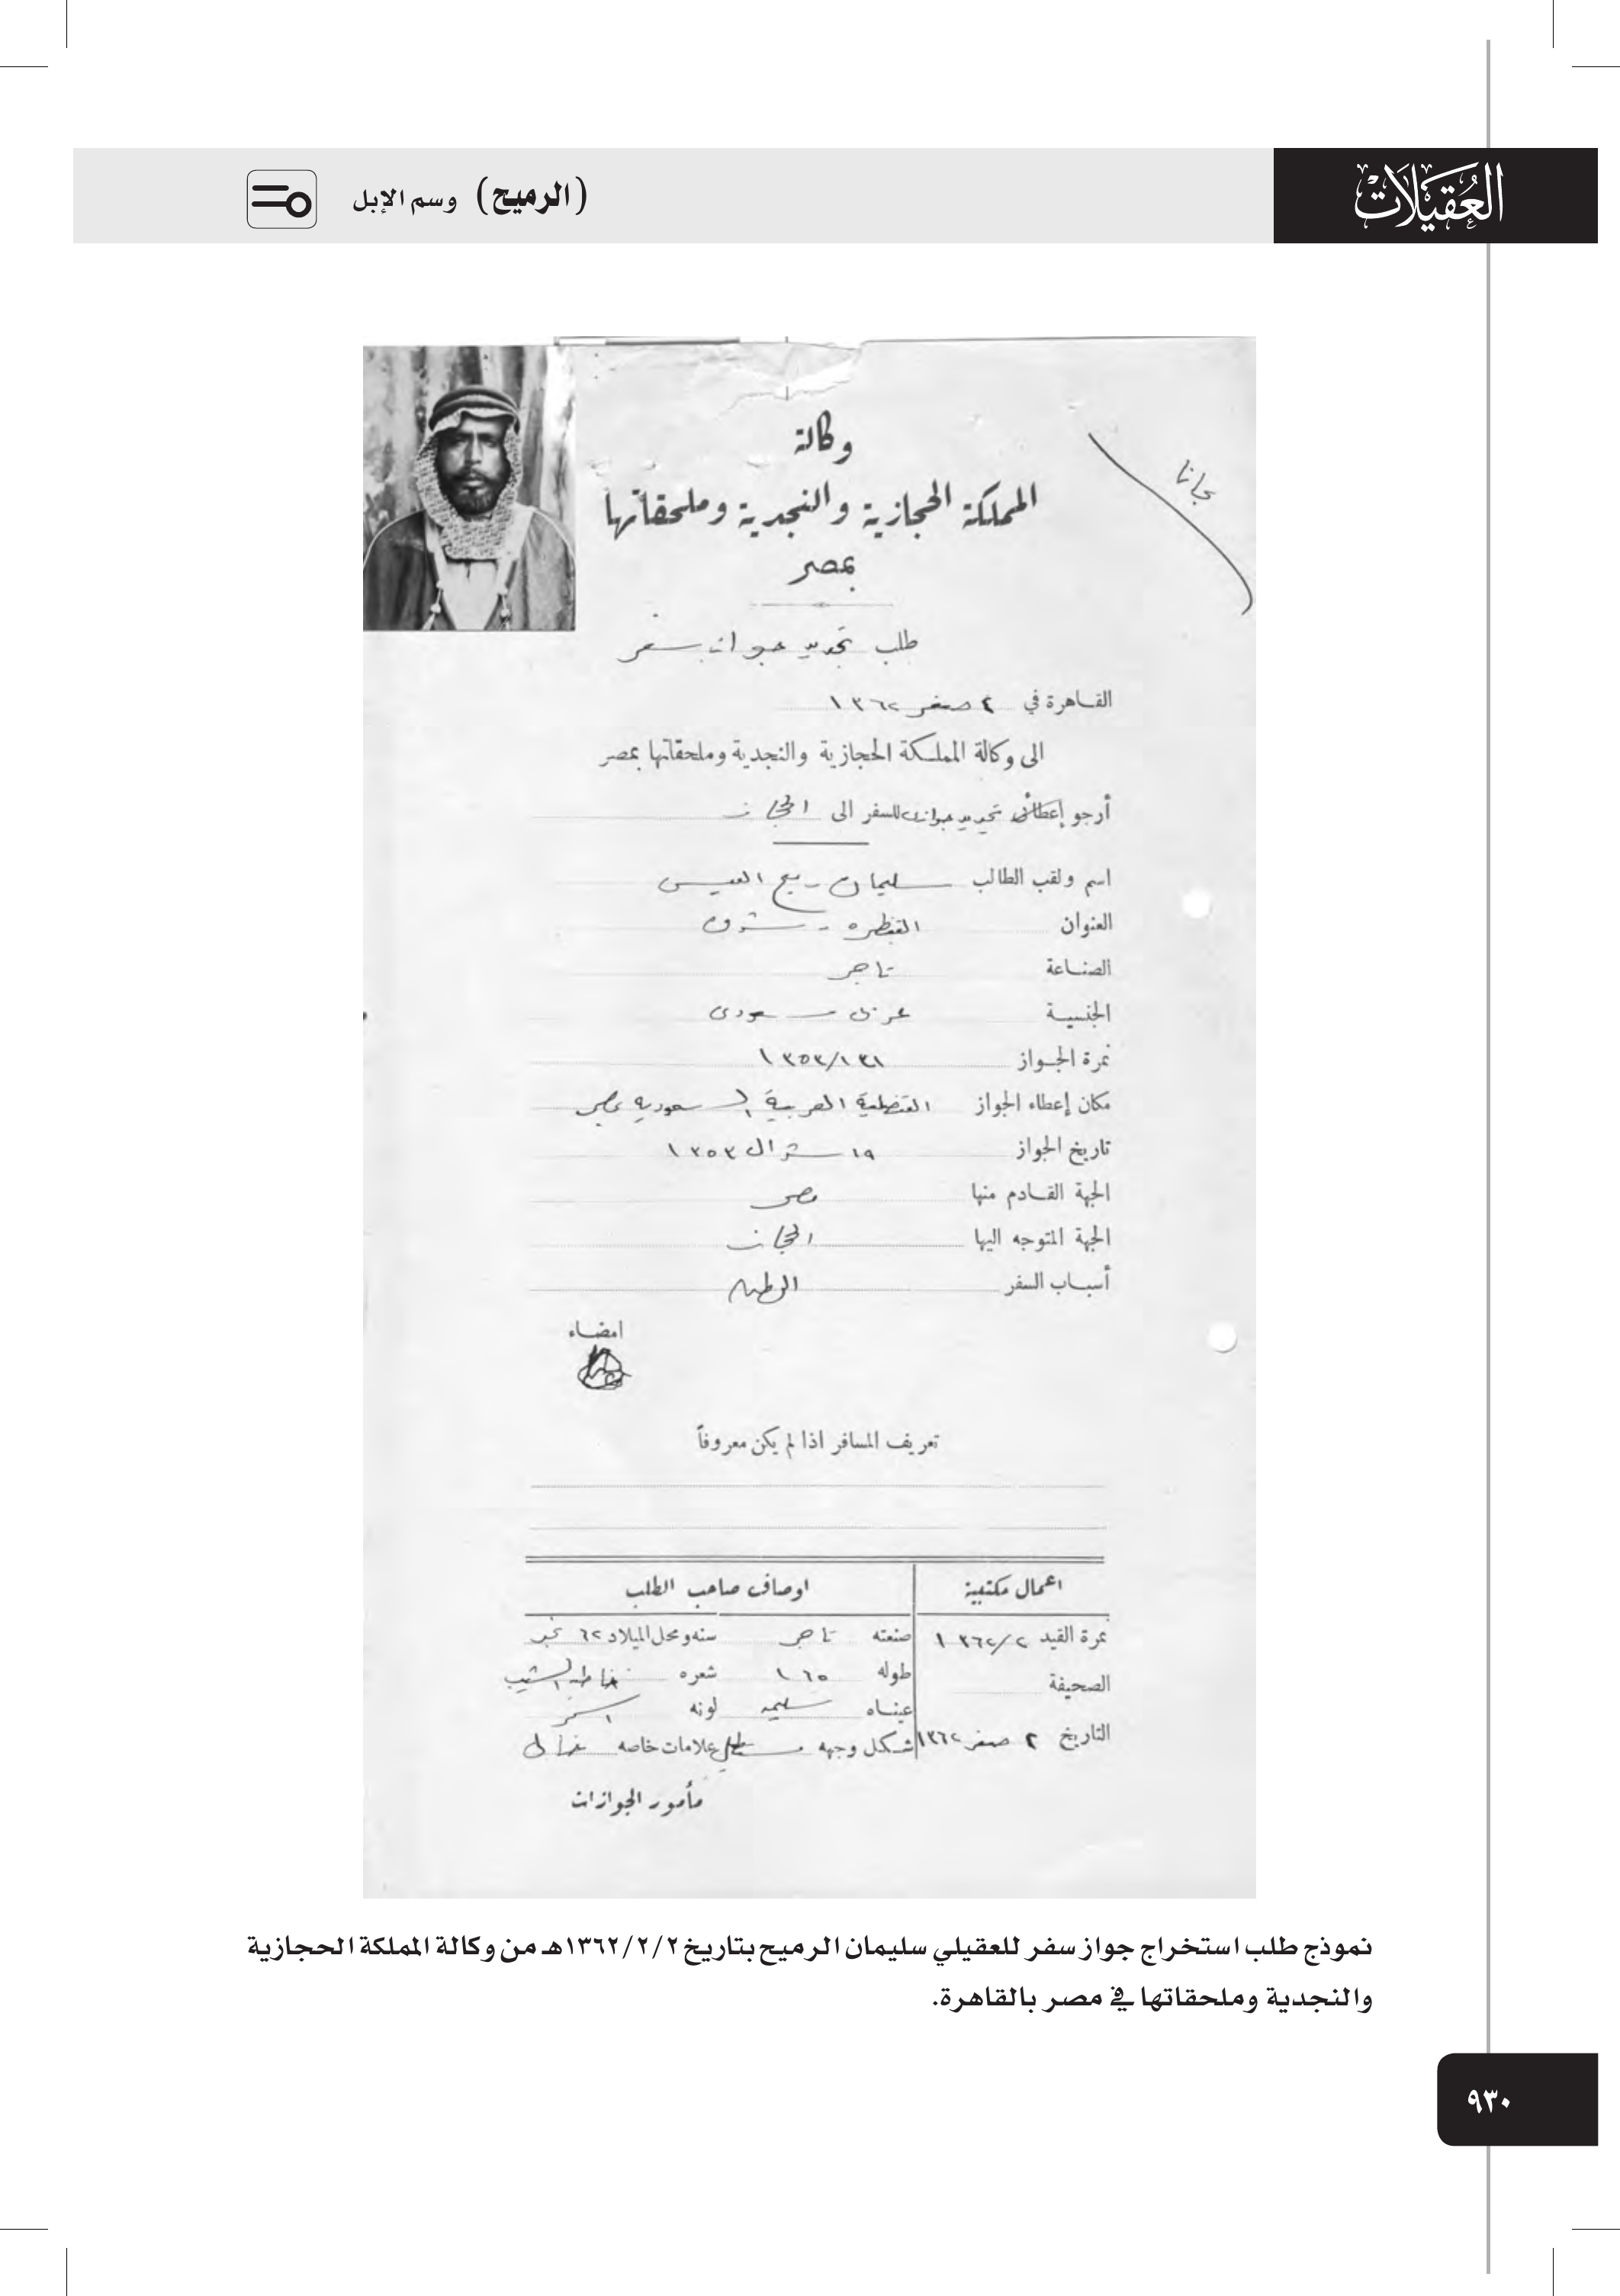 العُقيلات
(الرميح) وسم الإبل
مجانا
وكالة
المملكة الحجازية والنجدية وملحقاتها
بمصر
طلب تجديد جواز سفر
القاهرة في ٤ صفر ١٣٦٢
الى وكالة المملكة الحجازية والنجدية وملحقاتها بمصر
أرجو إعطائى تجديد جوازى للسفر الى الحجاز
اسم ولقب الطالب سليمان رميح العيسى
العنوان القنطره - شرق
الصناعة تاجر
الجنسية عربى سعودى
نمرة الجواز ١٣٥٣/١٣١
مكان إعطاء الجواز القنصلية العربية السعودية بمصر
تاريخ الجواز ١٩ شوال ١٣٥٣
الجهة القادم منها مصر
الجهة المتوجه اليها الحجاز
أسباب السفر الوطن
امضاء
تعريف المسافر اذا لم يكن معروفاً
اعمال مكتبية اوصاف صاحب الطلب
نمرة القيد ١٣٦٢/٢ صنعته تاجر سنه ومحل الميلاد ٦٢ نجد
الصحيفة طوله ١٦٥ شعره خاطه الشيب
عيناه سليمه لونه اسمر
التاريخ ٢ صفر ١٣٦٢ شكل وجهه مستطيل علامات خاصه
مأمور الجوازات
نموذج طلب استخراج جواز سفر للعقيلي سليمان الرميح بتاريخ ١٣٦٢/٢/٢هـ من وكالة المملكة الحجازية
والنجدية وملحقاتها في مصر بالقاهرة.
٩٣٠